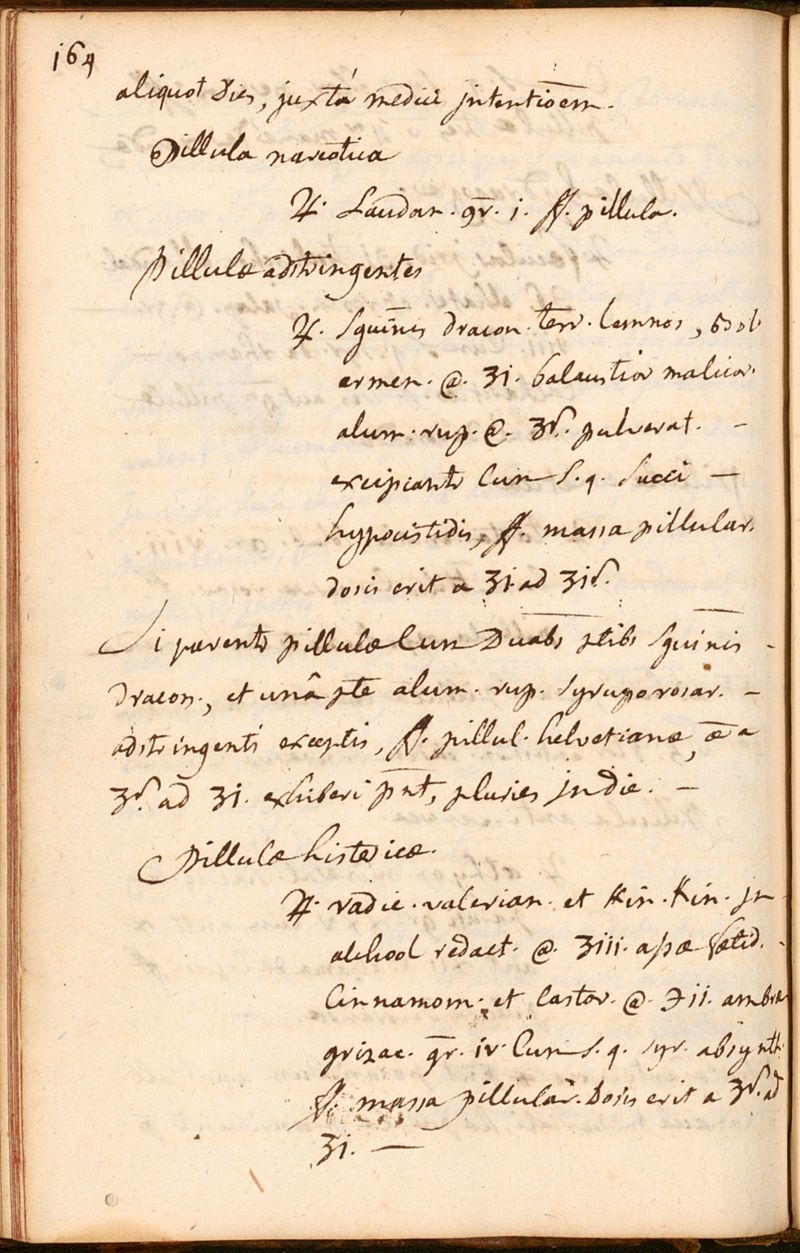 164
aliquot dies, juxtá medici jntentioēm.
Pillula narcotica
♃. Laudan. gr̄. j. ff. pillula.
Pillulæ adstringentes
♃. Sguīnis dracon. terr. lemnos, bol
armen. @. ʒi. balaustior malicor.
alum. rup. @. ʒß. pulverat. -
excipiantr Cum S. q. Succi —
hypocistidis, ff. massa pillular.
dosis erit a ʒi. ad ʒiß.
Si parentr pillulæ Cum Duabs ptibs Sguīnis -
dracon., et unâ pte alum. rup. Syrupo rosar. -
adstringenti exceptis, ff. pillul. helvetianæ, æ a
ʒß. ad ʒi. exhiberi pn̄t, pluries jn die. —
Pillulæ histericæ.
♃. radic. valerian. et Kin. Kin. jn
alchool redact. @. ʒiii. assæ fœtid. -
Cinnamom. et Castor. @. ℈ii. ambræ
grizae. gr̄. iv. Cum S. q. syr. absynth.
ff. massa pillular. Dosis erit a ʒß. ad
ʒi. —